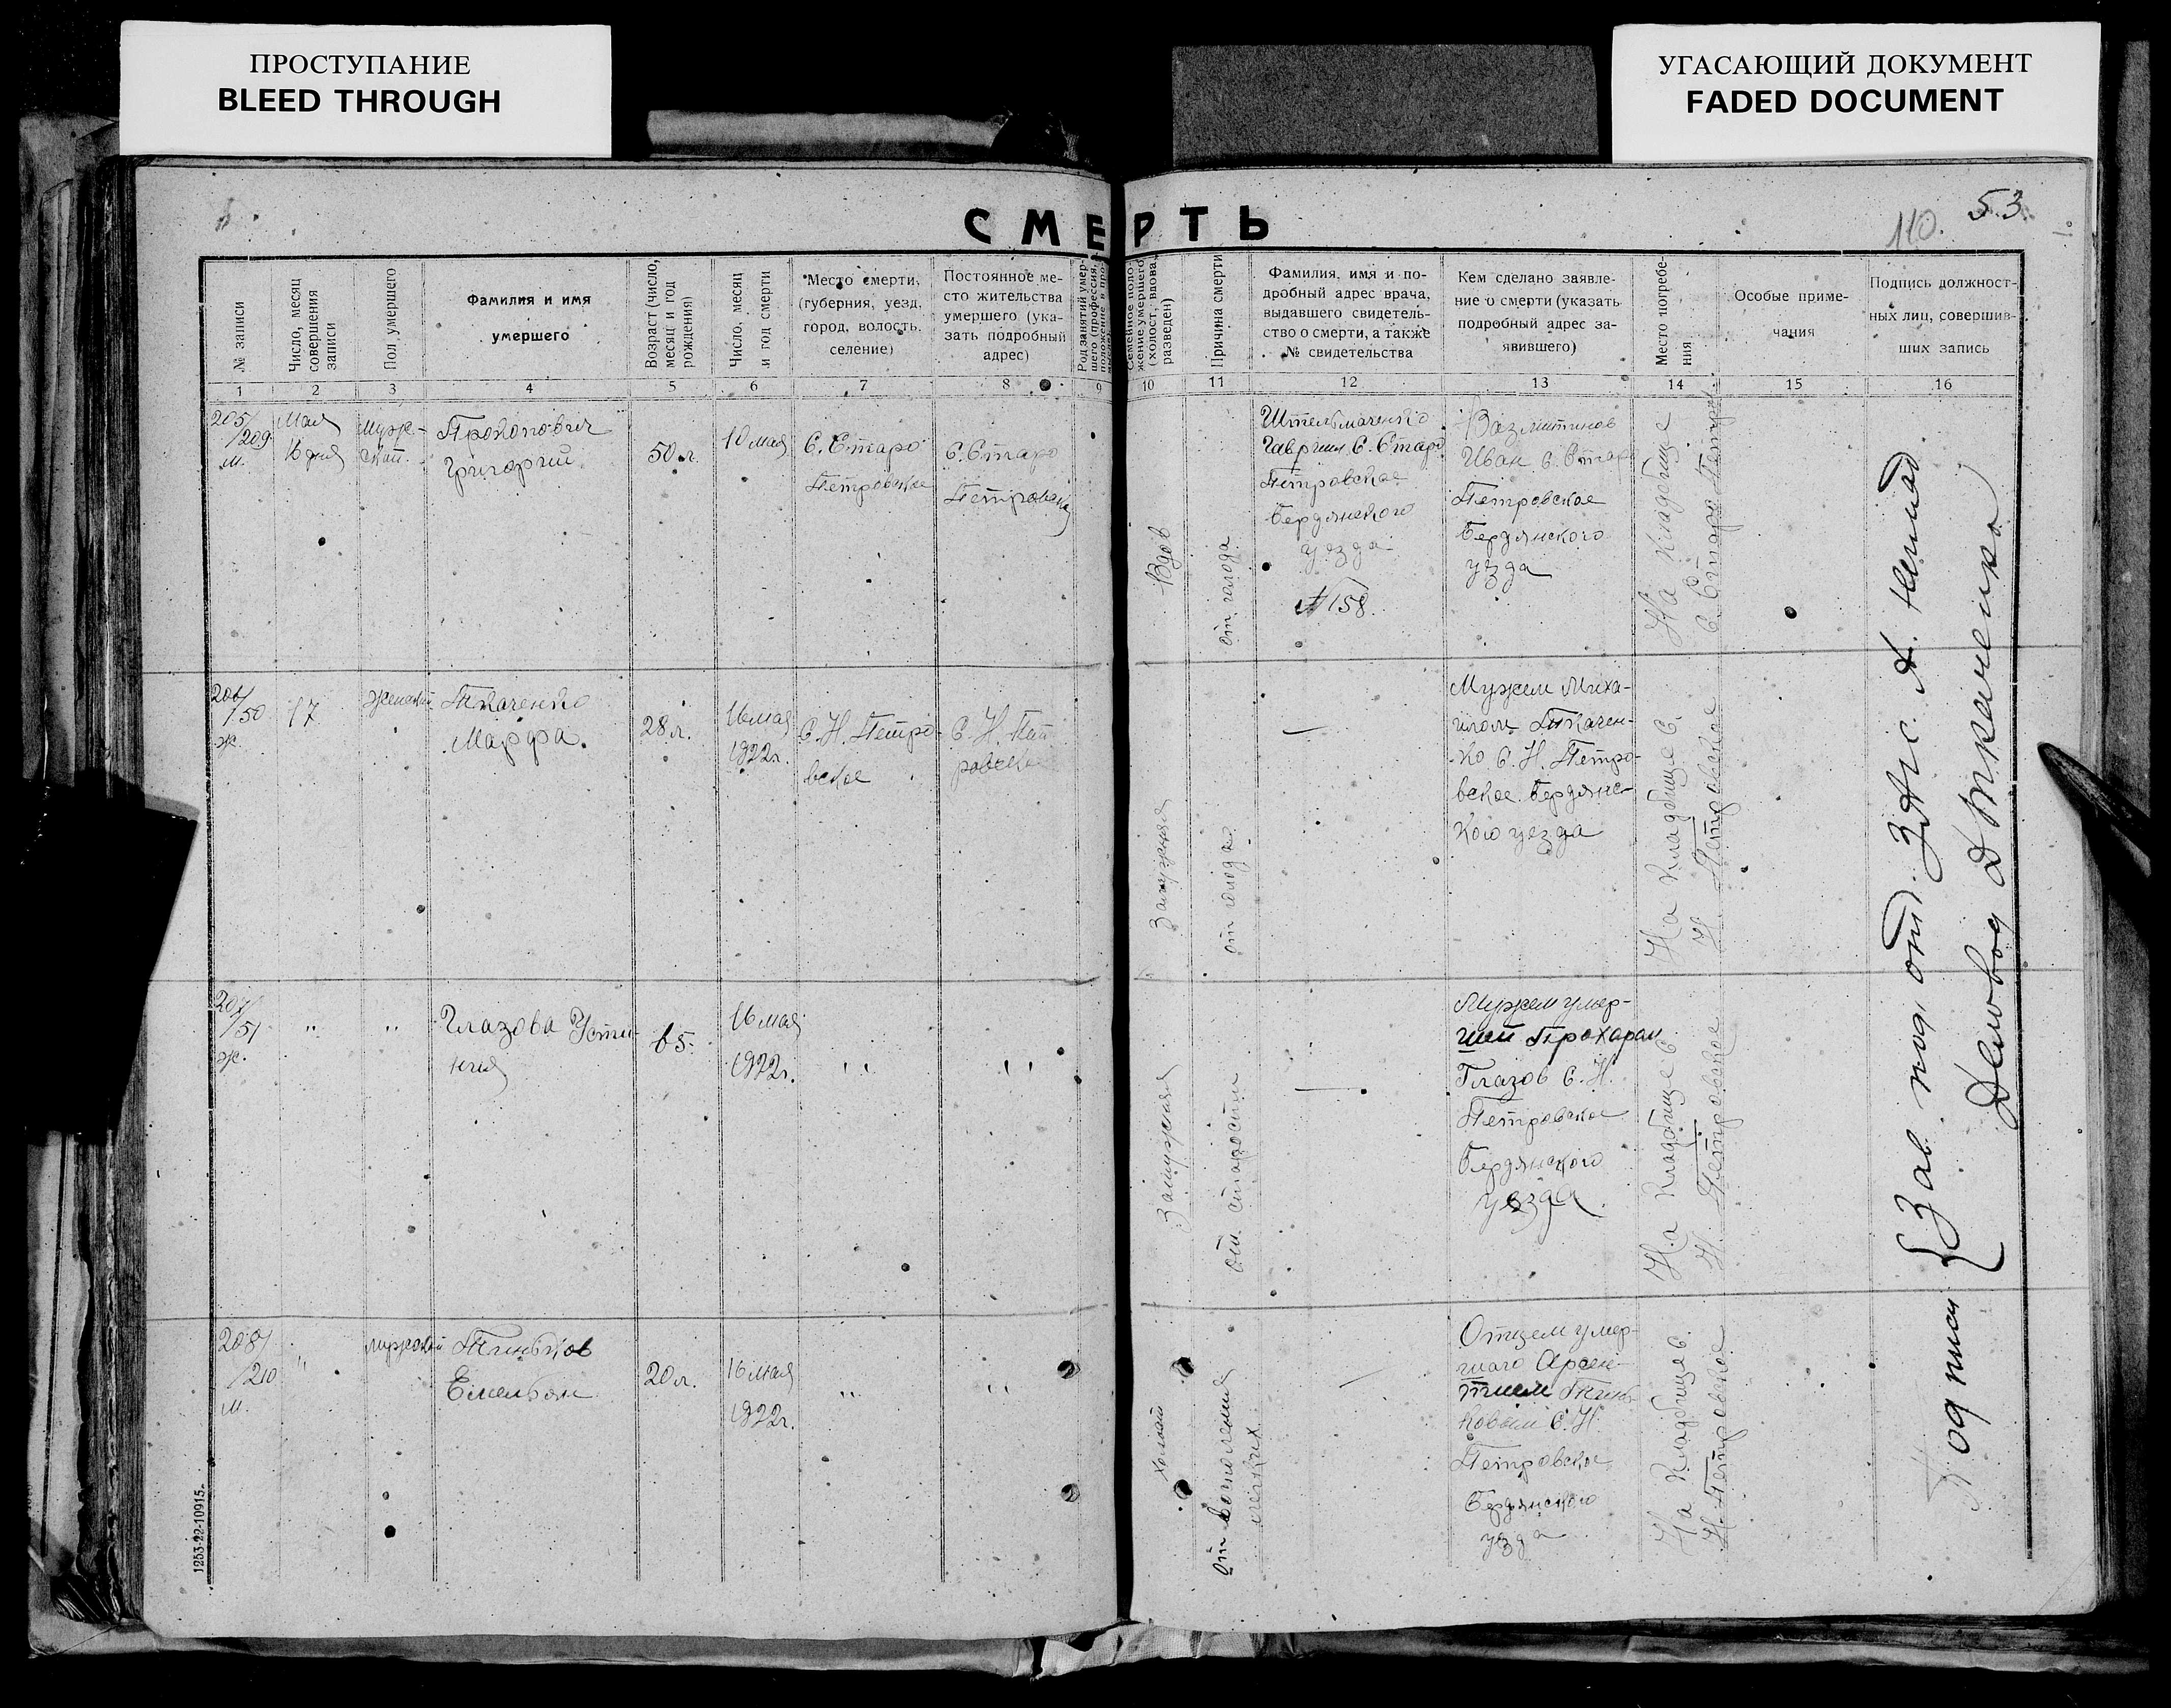 ПРОСТУПАНИЕ
BLEED THROUGH
УГАСАЮЩИЙ ДОКУМЕНТ
FADED DOCUMENT
53
110.
СМЕРТЬ
№ записи
Число, месяц
совершения
записи
Пол умершего
Фамилия и имя
умершего
Возраст (число,
месяц и год
рождения)
Число, месяц
и год смерти
Место смерти,
(губерния, уезд,
город, волость,
селение)
Постоянное ме-
сто жительства
умершего (ука-
зать подробный
адрес)
Род занятий умер-
шего профессия,
положение в про-
Семейное поло-
жение умершего
(холост, вдова,
разведен)
Причина смерти
Фамилия, имя и по-
дробный адрес врача,
выдавшего свидетель-
ство о смерти, а также
№ свидетельства
Кем сделано заявле-
ние о смерти (указать
подробный адрес за-
явившего)
Место погребе-
ния
Особые приме-
чания
Подпись должност-
ных лиц, совершив-
ших запись
1 2 3 4 5 6 7 8 9 10 11 12 13 14 15 16
205/
/209
м.
Мая
16 дня
Муж-
ской.
Прокопович
Григорий
50 л.
10 мая
С. Старо
Петровское
С. Старо
Петровское
Вдов
от голода
Штельмаченко
Гавриил С. Старо
Петровское
Бердянского
уезда
№ 158.
Вазмитинов
Иван С. Старо
Петровское
Бердянского
узда
На Кладбище
С. Старо Петр.
206/
/50
ж.
17
Женский
Ткаченко
Марфа.
28 л.
16 мая
1922г.
С. Н. Петро-
вское
С. Н. Пет
ровское
Замужняя
от голода
—
Мужем Миха-
илом Ткачен-
ко С. Н. Петро-
вское Бердянс-
кого уезда
На Кладбище С.
Н. Петровское
207/
/51
ж.
"
"
Глазова Усти-
ния
65.
16 мая
1922г.
"
"
Замужняя
от. старости
—
Мужем умер-
шей Прохарам
Глазов С. Н.
Петровское
Бердянского
уезда
На Кладбище С.
Н. Петровское
208/
/210
м.
"
мужской
Тиньков
Емельян
20 л.
16 мая
1922г.
"
"
Холост
от воспаления
легких
—
Отцем умер-
шаго Арсен-
тием
ковым С. Н.
Петровское
Бердянского
узда
На Кладбище С.
Н. Петровское
Подписи
Зав. подотд. ЗАГС
Деловод Д Ткаченко
1253-22-10915